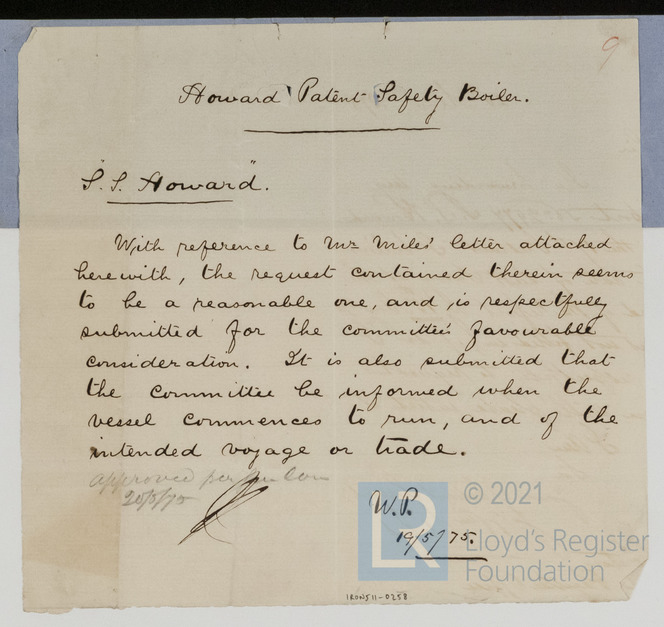 9
Howard Patent Safety Boiler.
"S.S. Howard".
With reference to Mr Miles' letter attached
herewith, the request contained therein seems
to be a reasonable one, and is respectfully
submitted for the committee's favourable
consideration. It is also submitted that
the committee be informed when the
vessel commences to run, and of the
intended voyage or trade.
approved per
20/5/75
W.P.
19/5/75.
LR
© 2021
Lloyd's Register
Foundation
IRON511-0258